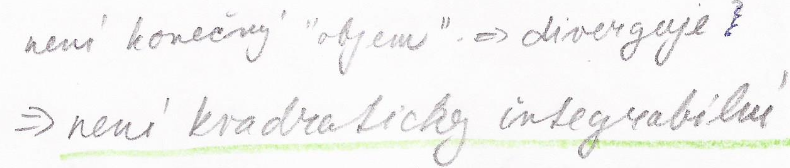 není konečný "objem" ⇒ diverguje?
⇒ není kvadraticky integrabilní